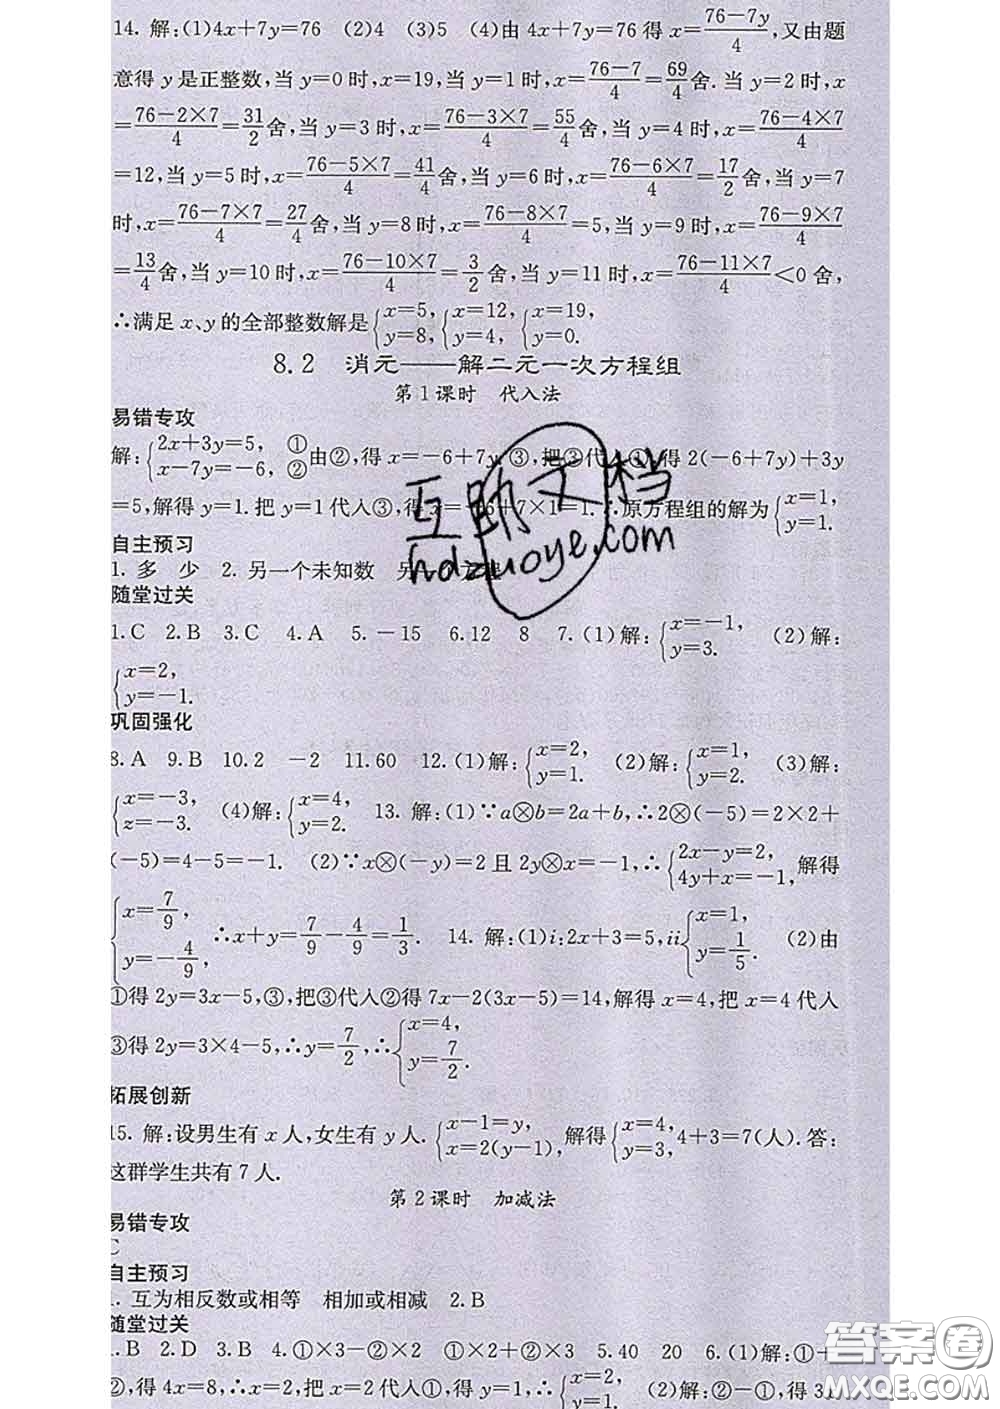 14. 解:(1)4x+7y=76 (2)4 (3)5 (4)由 4x+7y=76 得 x=\frac{76-7y}{4},又由题
意得 y 是正整数,当 y=0 时,x=19,当 y=1 时,x=\frac{76-7}{4}=\frac{69}{4}舍.当 y=2 时,x
=\frac{76-2×7}{4}=\frac{31}{2}舍,当 y=3 时,x=\frac{76-3×7}{4}=\frac{55}{4}舍,当 y=4 时,x=\frac{76-4×7}{4}
=12,当 y=5 时,x=\frac{76-5×7}{4}=\frac{41}{4}舍,当 y=6 时,x=\frac{76-6×7}{4}=\frac{17}{2}舍,当 y=7
时,x=\frac{76-7×7}{4}=\frac{27}{4}舍,当 y=8 时,x=\frac{76-8×7}{4}=5,当 y=9 时,x=\frac{76-9×7}{4}
=\frac{13}{4}舍,当 y=10 时,x=\frac{76-10×7}{4}=\frac{3}{2}舍,当 y=11 时,x=\frac{76-11×7}{4}<0 舍,
∴满足 x、y 的全部整数解是{x=5, y=8, {x=12, y=4, {x=19, y=0.
8.2 消元——解二元一次方程组
第1课时 代入法
易错专攻
解:{2x+3y=5, ① x-7y=-6, ②由②,得 x=-6+7y ③,把③代入①,得 2(-6+7y)+3y
=5,解得 y=1.把 y=1 代入③,得 x=-6+7×1=1.∴原方程组的解为{x=1, y=1.
自主预习
1. 多 少 2. 另一个未知数 另一个方程
随堂过关
1.C 2.B 3.C 4.A 5.-15 6.12 8 7.(1)解:{x=-1, y=3. (2)解:
{x=2, y=-1.
巩固强化
8.A 9.B 10.2 -2 11.60 12.(1)解:{x=2, y=1. (2)解:{x=1, y=2. (3)解:
{x=-3, z=-3. (4)解:{x=4, y=2. 13. 解:(1)∵a⊗b=2a+b,∴2⊗(-5)=2×2+
(-5)=4-5=-1. (2)∵x⊗(-y)=2 且 2y⊗x=-1,∴{2x-y=2, 4y+x=-1,解得
{x=\frac{7}{9}, y=-\frac{4}{9}, ∴x+y=\frac{7}{9}-\frac{4}{9}=\frac{1}{3}. 14. 解:(1)i:2x+3=5,ii{x=1, y=\frac{1}{5}. (2)由
①得 2y=3x-5,③,把③代入②得 7x-2(3x-5)=14,解得 x=4,把 x=4 代入
③得 2y=3×4-5,∴y=\frac{7}{2},∴{x=4, y=\frac{7}{2}.
拓展创新
15. 解:设男生有 x 人,女生有 y 人.{x-1=y, x=2(y-1),解得{x=4, y=3,4+3=7(人).答:
这群学生共有 7 人.
第2课时 加减法
易错专攻
C
自主预习
1. 互为相反数或相等 相加或相减 2.B
随堂过关
1.B 2.D 3.B 4.①×3-②×2 ①×2+②×3 5.40 20 6.(1)解:①+
②,得 4x=8,∴x=2,把 x=2 代入①,得 y=1,∴{x=2, y=1. (2)解:②-①,得 3
互助文档
hdzuoye.com
答案圈
MXQE.COM